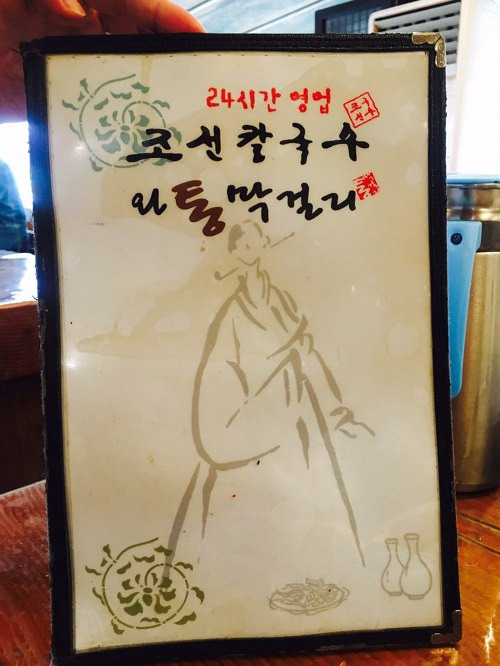 24시간 영업
조선칼국수
와 통막걸리